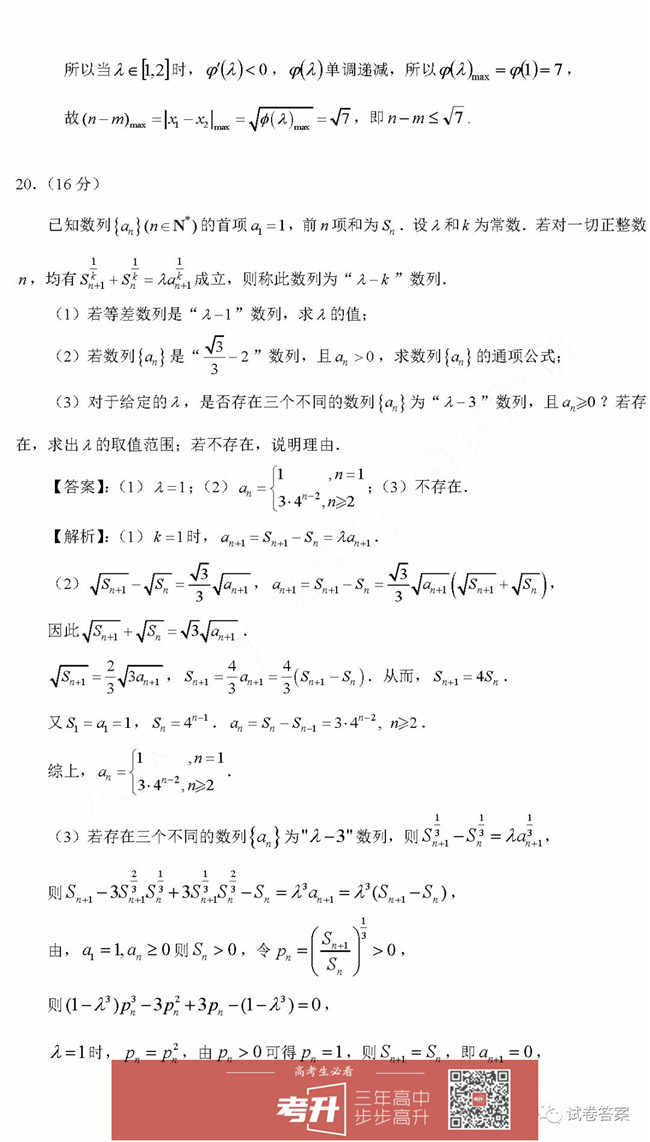 所以当 λ∈[1,2] 时，φ′(λ)<0，φ(λ)单调递减，所以φ(λ)max = φ(1) = 7，
故 (n−m)max = |x₁−x₂|max = √(ϕ(λ)max) = √7，即 n−m ≤ √7．
20．（16 分）
已知数列{aₙ}(n∈N*)的首项 a₁=1，前 n 项和为 Sₙ．设 λ 和 k 为常数．若对一切正整数
n，均有 Sₙ₊₁^(1/k) + Sₙ^(1/k) = λaₙ₊₁^(1/k) 成立，则称此数列为“λ−k”数列．
（1）若等差数列是“λ−1”数列，求 λ 的值；
（2）若数列{aₙ}是“√3/3−2”数列，且 aₙ>0，求数列{aₙ}的通项公式；
（3）对于给定的 λ，是否存在三个不同的数列{aₙ}为“λ−3”数列，且 aₙ⩾0？若存
在，求出 λ 的取值范围；若不存在，说明理由．
【答案】：（1）λ=1；（2）aₙ = {1 , n=1; 3·4ⁿ⁻², n⩾2；（3）不存在．
【解析】：（1）k=1时，aₙ₊₁ = Sₙ₊₁−Sₙ = λaₙ₊₁．
（2）√Sₙ₊₁ − √Sₙ = (√3/3)√aₙ₊₁，aₙ₊₁ = Sₙ₊₁−Sₙ = (√3/3)√aₙ₊₁(√Sₙ₊₁ + √Sₙ)，
因此√Sₙ₊₁ + √Sₙ = √3√aₙ₊₁．
√Sₙ₊₁ = (2/3)√(3aₙ₊₁)，Sₙ₊₁ = (4/3)aₙ₊₁ = (4/3)(Sₙ₊₁−Sₙ)．从而，Sₙ₊₁ = 4Sₙ．
又 S₁=a₁=1，Sₙ=4ⁿ⁻¹．aₙ = Sₙ−Sₙ₋₁ = 3·4ⁿ⁻², n⩾2．
综上，aₙ = {1 , n=1; 3·4ⁿ⁻², n⩾2．
（3）若存在三个不同的数列{aₙ}为"λ−3"数列，则 Sₙ₊₁^(1/3) − Sₙ^(1/3) = λaₙ₊₁^(1/3)，
则 Sₙ₊₁ − 3Sₙ₊₁^(2/3)Sₙ^(1/3) + 3Sₙ₊₁^(1/3)Sₙ^(2/3) − Sₙ = λ³aₙ₊₁ = λ³(Sₙ₊₁−Sₙ)，
由，a₁=1,aₙ≥0 则 Sₙ>0，令 pₙ = (Sₙ₊₁/Sₙ)^(1/3) > 0，
则 (1−λ³)pₙ³ − 3pₙ² + 3pₙ − (1−λ³) = 0，
λ=1时，pₙ = pₙ²，由 pₙ>0 可得 pₙ=1，则 Sₙ₊₁ = Sₙ，即 aₙ₊₁=0，
高考生必看
考升
三年高中
步步高升
试卷答案